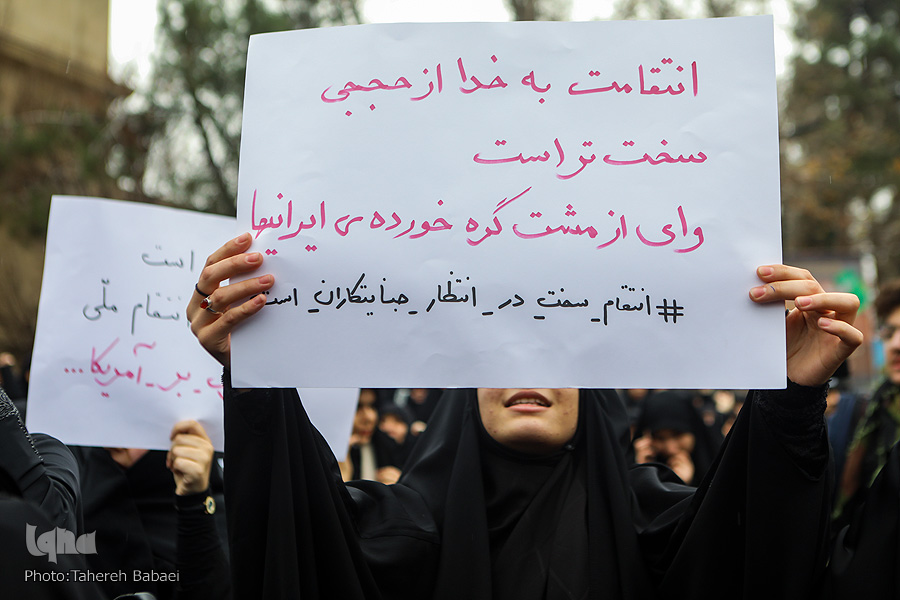 انتقامت به خدا از حججی
سخت تر است
وای از مشت گره خورده ی ایرانیها
#انتقام_سخت_در_انتظار_جنایتکاران_است
است
انتقام ملّی
بر_آمریکا...
iqna
Photo:Tahereh Babaei